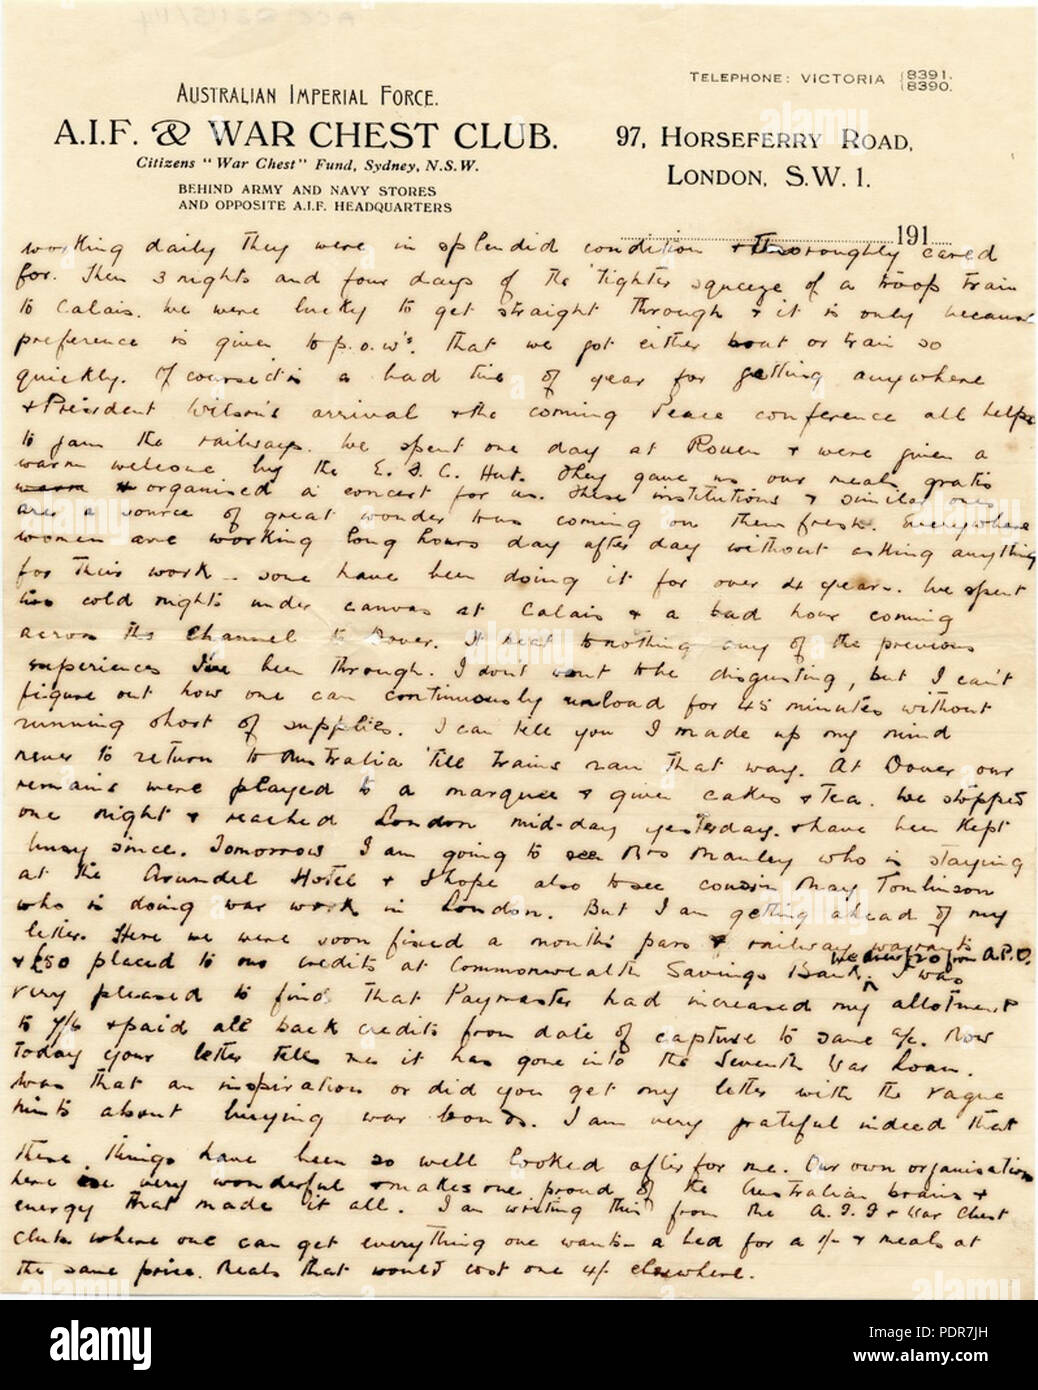 TELEPHONE: VICTORIA {8391.
{8390.
AUSTRALIAN IMPERIAL FORCE.
A.I.F. & WAR CHEST CLUB.
Citizens "War Chest" Fund, Sydney, N.S.W.
BEHIND ARMY AND NAVY STORES
AND OPPOSITE A.I.F. HEADQUARTERS
97, HORSEFERRY ROAD,
LONDON, S.W. 1.
191
working daily they were in splendid condition & thoroughly cared
for. Then 3 nights and four days of the tighter squeeze of a troop train
to Calais. We were lucky to get straight through & it is only because
preference is given to p.o.w's. that we got either boat or train so
quickly. Of course it is a bad time of year for getting anywhere
& President Wilson's arrival & the coming Peace conference all helps
to jam the railways. We spent one day at Rouen & were given a
warm welcome by the E. F. C. Hut. They gave us our meals gratis
& organised a concert for us. These institutions & similar ones
are a source of great wonder to us coming on them fresh. Everywhere
women are working long hours day after day without asking anything
for their work - some have been doing it for over 4 years. We spent
two cold nights under canvas at Calais & a bad hour coming
across the Channel to Dover. It beat to nothing any of the previous
experiences I've been through. I don't want to be disgusting, but I can't
figure out how one can continuously unload for 45 minutes without
running short of supplies. I can tell you I made up my mind
never to return to Australia 'till trains ran that way. At Dover our
remains were played to a marquee & given cakes & Tea. We stopped
one night & reached London mid-day yesterday. & have been kept
busy since. Tomorrow I am going to see Mrs Manley who is staying
at the Arundel Hotel & I hope also to see cousin May Tomlinson
who is doing war work in London. But I am getting ahead of my
letter. Here we were soon fixed a month's pass & railway warrants
& £50 placed to our credits at Commonwealth Savings Bank. I was
We drew £20 from A.P.O.
very pleased to find that Paymaster had increased my allotment
to 7/6 & paid all back credits from date of capture to same a/c. Now
today your letter tells me it has gone into the Seventh War Loan.
Was that an inspiration or did you get my letter with the vague
hints about buying war bonds. I am very grateful indeed that
these things have been so well looked after for me. Our own organisation
here is very wonderful & makes one proud of the Australian brains &
energy that made it all. I am writing this from the A. I. F & War Chest
Club where one can get everything one wants - a bed for a 1/- & meals at
the same price. Meals that would cost one 4/- elsewhere.
alamy
PDR7JH
www.alamy.com